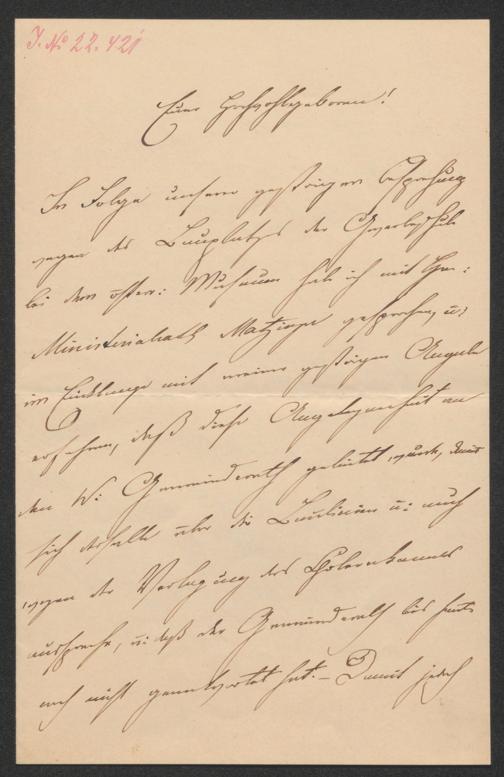 J. No 22.421
Euer Hochwohlgeboren!
In Folge unserer gestrigen Besprechung
wegen des Bauplatzes der Gewerbeschule
bei dem österr: Museum hab ich mit Hrn:
Ministerialrath Matzinger gesprochen, u:
im Einklange mit meiner gestrigen Angabe
erfahren, daß diese Angelegenheit an
den W: Gemeinderath geleitet wurde, damit
sich derselbe über die Baulinien u: auch
wegen der Verlegung des Cholerakanals
ausspreche, u: daß der Gemeinderath bis heute
noch nicht geantwortet hat. – Damit jedoch